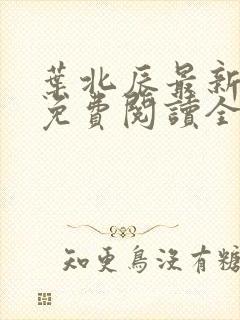 葉北辰最新
免費閱讀全
知更鳥沒有糖